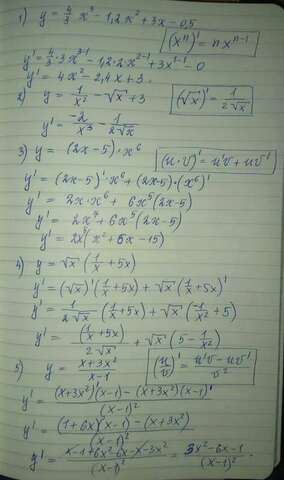 1) y = 4/3 x³ - 1,2x² + 3x - 0,5
(xⁿ)' = nxⁿ⁻¹
y' = 4/3 · 3x³⁻¹ - 1,2·2x²⁻¹ + 3x¹⁻¹ - 0
y' = 4x² - 2,4x + 3.
2) y = 1/x² - √x + 3
(√x)' = 1/2√x
y' = -2/x³ - 1/2√x
3) y = (2x-5)·x⁶
(u·v)' = u'v + uv'
y' = (2x-5)'·x⁶ + (2x-5)·(x⁶)'
y' = 2x·x⁶ + 6x⁵(2x-5)
y' = 2x⁷ + 6x⁵(2x-5)
y' = 2x⁵(x² + 6x - 15)
4) y = √x (1/x + 5x)
y' = (√x)'(1/x + 5x) + √x (1/x + 5x)'
y' = 1/2√x (1/x + 5x) + √x (-1/x² + 5)
y' = (1/x + 5x)/2√x + √x (5 - 1/x²)
5) y = x+3x²/x-1
(u/v)' = u'v - uv'/v²
y' = (x+3x²)'(x-1) - (x+3x²)(x-1)'/(x-1)²
y' = (1+6x)(x-1) - (x+3x²)/(x-1)²
y' = x-1+6x²-6x-x-3x²/(x-1)² = 3x²-6x-1/(x-1)².